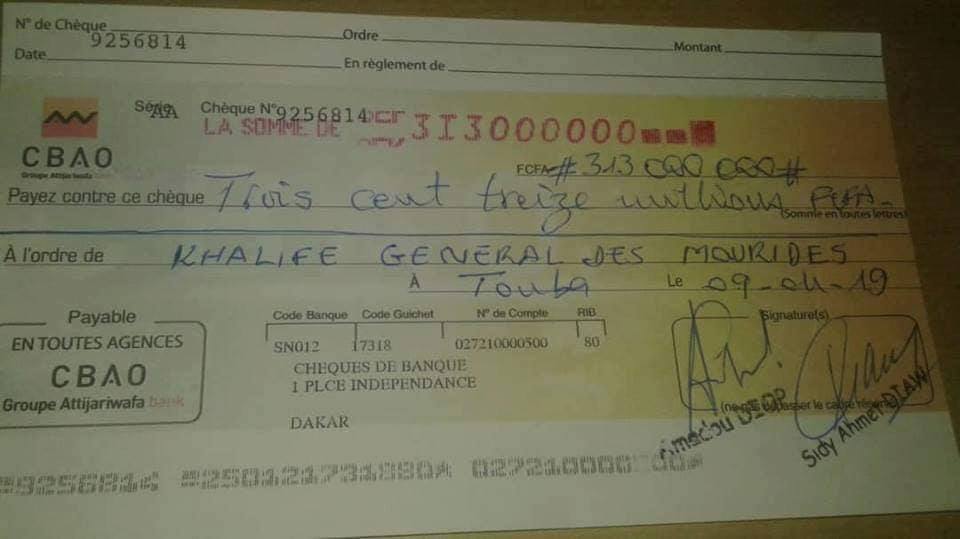 N° de Chèque 9256814 Ordre Montant
Date En règlement de
Série AA Chèque N° 9256814
LA SOMME DE 313000000
CBAO
Groupe Attijariwafa bank
FCFA #313 000 000#
Payez contre ce chèque Trois cent treize millions FCFA
(Somme en toutes lettres)
À l'ordre de KHALIFE GENERAL DES MOURIDES
À Touba Le 09-04-19
Payable
EN TOUTES AGENCES
CBAO
Groupe Attijariwafa bank
Code Banque Code Guichet N° de Compte RIB
SN012 17318 027210000500 80
CHEQUES DE BANQUE
1 PLCE INDEPENDANCE
DAKAR
Signature(s)
(ne pas dépasser le cadre réservé)
Amadou DIOP
Sidy Ahmet DIAW
9256814